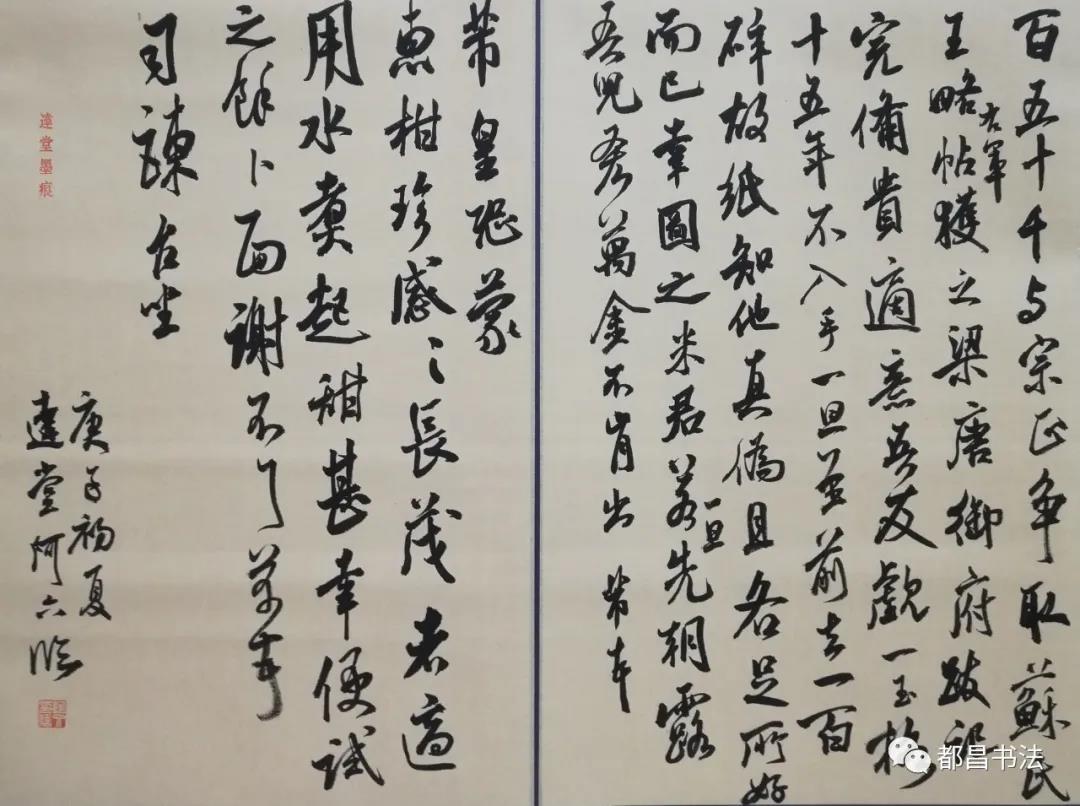 百五十千与宗正争取苏氏
王略帖右軍獲之梁唐御府跋記
完備貴適意吾友戲一玉格
十五年不入手一旦並前去一百
碎故紙知他真偽且各足所好
而已章圖之米君若一旦先朝露
吾兒吝萬金不肯出 芾本
芾皇恐蒙
惠柑珍感〻長茂者適
用水煮起甜甚幸便試
之餘卜面謝不了芾本
司諫台坐
庚子初夏
達堂阿六臨
達堂墨痕
都昌书法